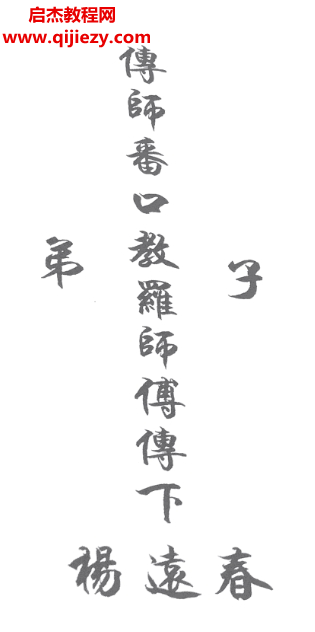 启杰教程网
www.qijiezy.com
傳師番口教羅師傅傳下
弟子
楊遠春